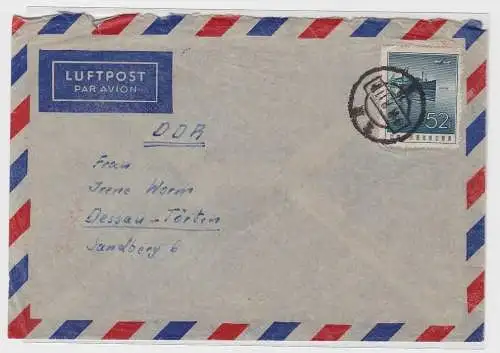 LUFTPOST
PAR AVION
52
DDR
Frau
Irene Worm
Dessau - Törten
Sandberg 6